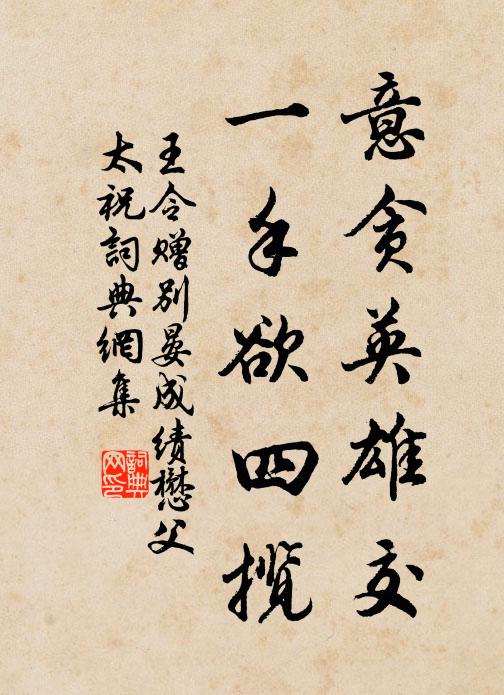 意贪英雄交
一手欲四揽
王令赠别晏成绩懋父
太祝詞典網集
詞典
网印